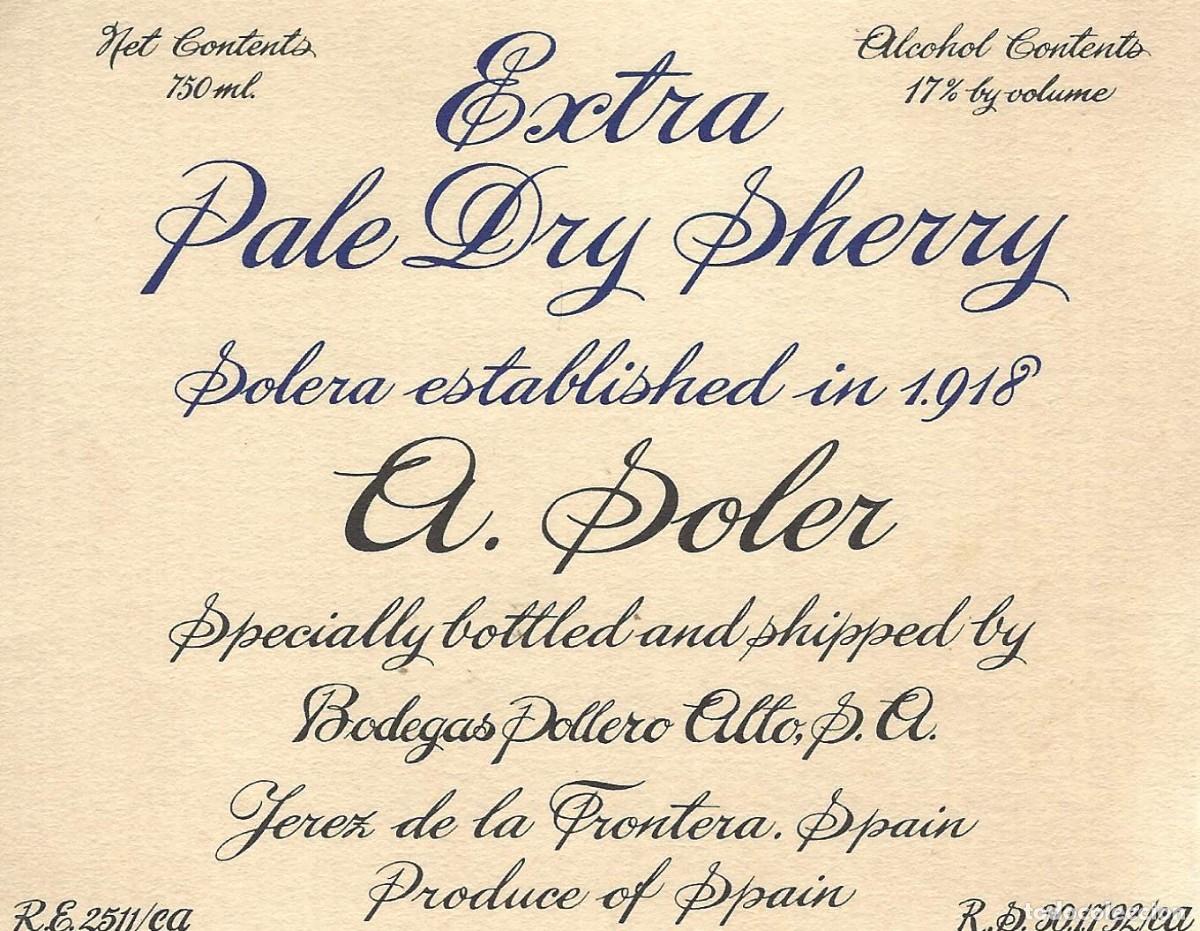 Net Contents
750 ml.
Alcohol Contents
17% by volume
Extra
Pale Dry Sherry
Solera established in 1.918
A. Soler
Specially bottled and shipped by
Bodegas Pollero Alto, S. A.
Jerez de la Frontera. Spain
Produce of Spain
R.E. 2511/ca
todocoleccion